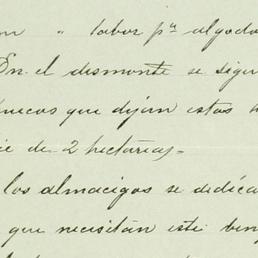 " labor pª algodo
En el desmonte se sigu
huecos que dejan estas
de 2 hectareas =
los almacigos se dedica
que necesitan este